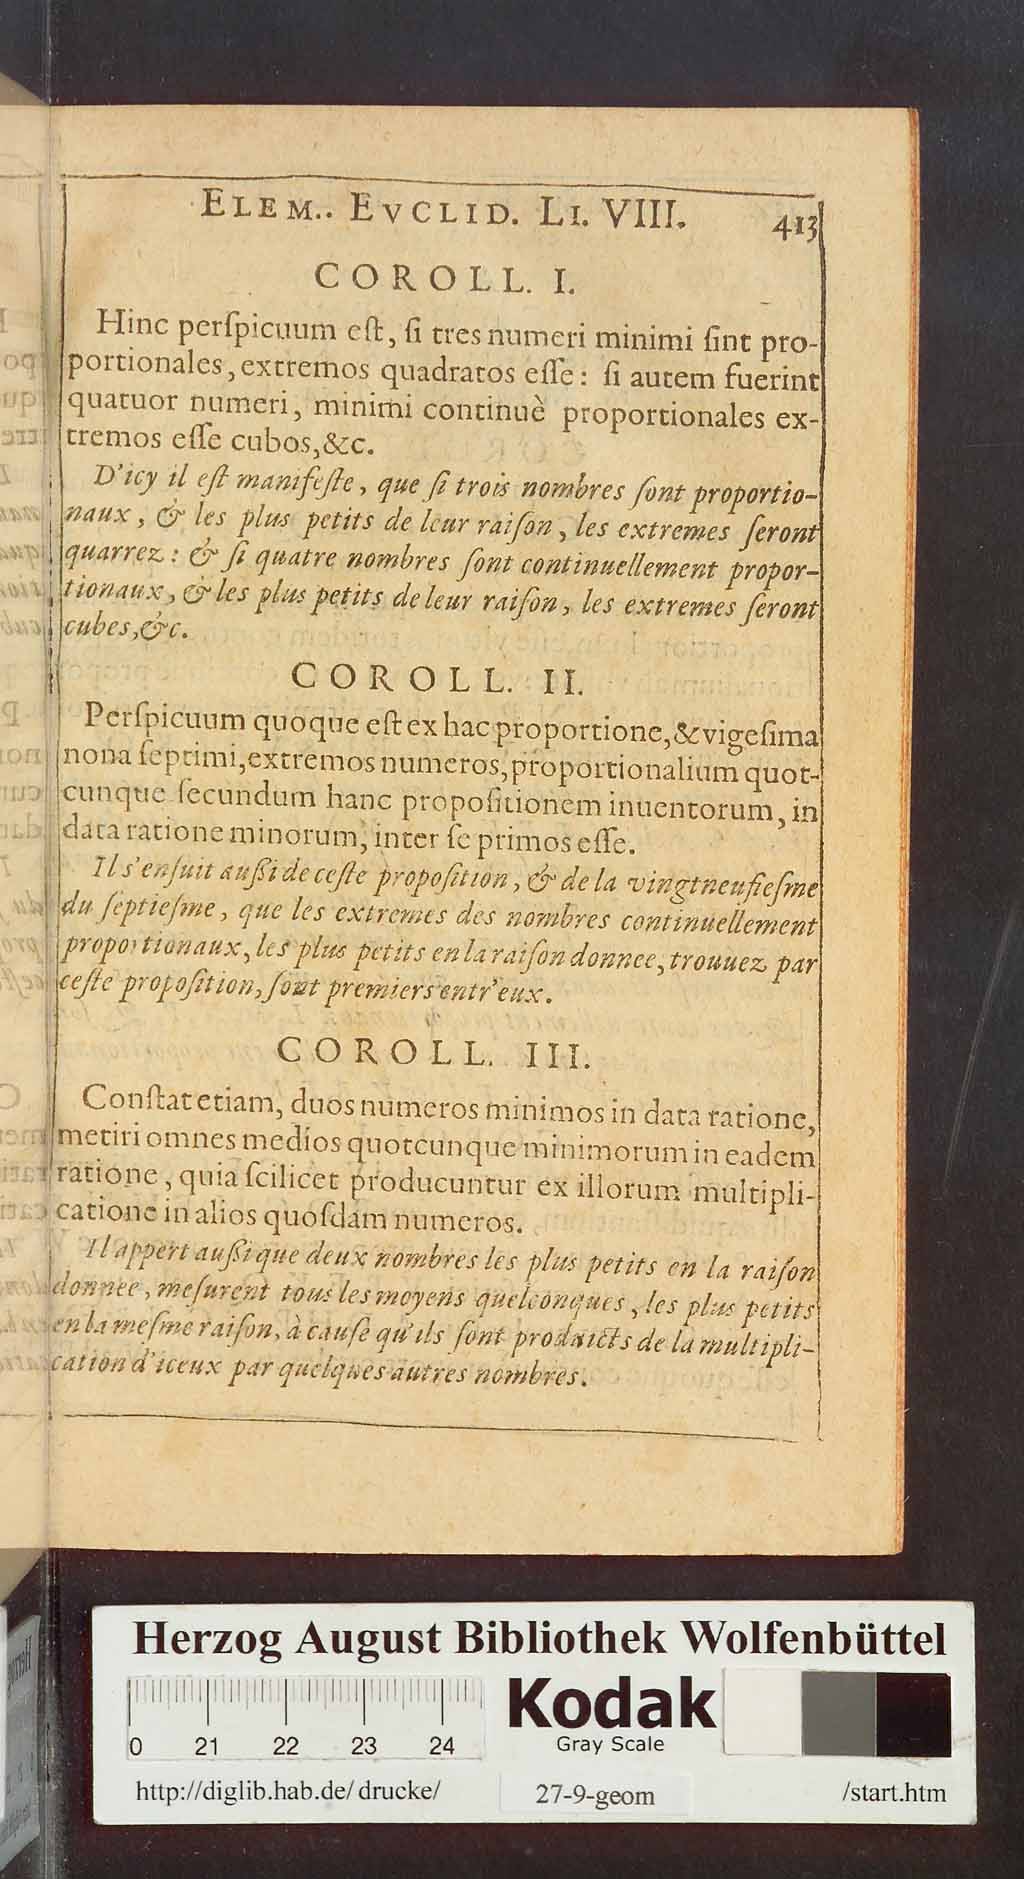 ELEM.. EVCLID. LI. VIII. 413
COROLL. I.
Hinc perſpicuum eſt, ſi tres numeri minimi ſint pro-
portionales, extremos quadratos eſſe: ſi autem fuerint
quatuor numeri, minimi continuè proportionales ex-
tremos eſſe cubos,&c.
D'icy il eſt manifeſte, que ſi trois nombres ſont proportio-
naux, & les plus petits de leur raiſon, les extremes ſeront
quarrez: & ſi quatre nombres ſont continuellement propor-
tionaux, & les plus petits de leur raiſon, les extremes ſeront
cubes,&c.
COROLL. II.
Perſpicuum quoque eſt ex hac proportione,& vigeſima
nona ſeptimi,extremos numeros,proportionalium quot-
cunque ſecundum hanc propoſitionem inuentorum, in
data ratione minorum, inter ſe primos eſſe.
Il s'enſuit auſſi de ceſte propoſition, & de la vingtneufieſme
du ſeptieſme, que les extremes des nombres continuellement
proportionaux, les plus petits en la raiſon donnee, trouuez par
ceſte propoſition, ſont premiers entr'eux.
COROLL. III.
Conſtat etiam, duos numeros minimos in data ratione,
metiri omnes medios quotcunque minimorum in eadem
ratione, quia ſcilicet producuntur ex illorum multipli-
catione in alios quoſdam numeros.
Il appert auſſi que deux nombres les plus petits en la raiſon
donnee, meſurent tous les moyens quelconques, les plus petits
en la meſme raiſon, à cauſe qu'ils ſont produicts de la multipli-
cation d'iceux par quelques autres nombres.
Herzog August Bibliothek Wolfenbüttel
Kodak
Gray Scale
0 21 22 23 24
http://diglib.hab.de/ drucke/ 27-9-geom /start.htm